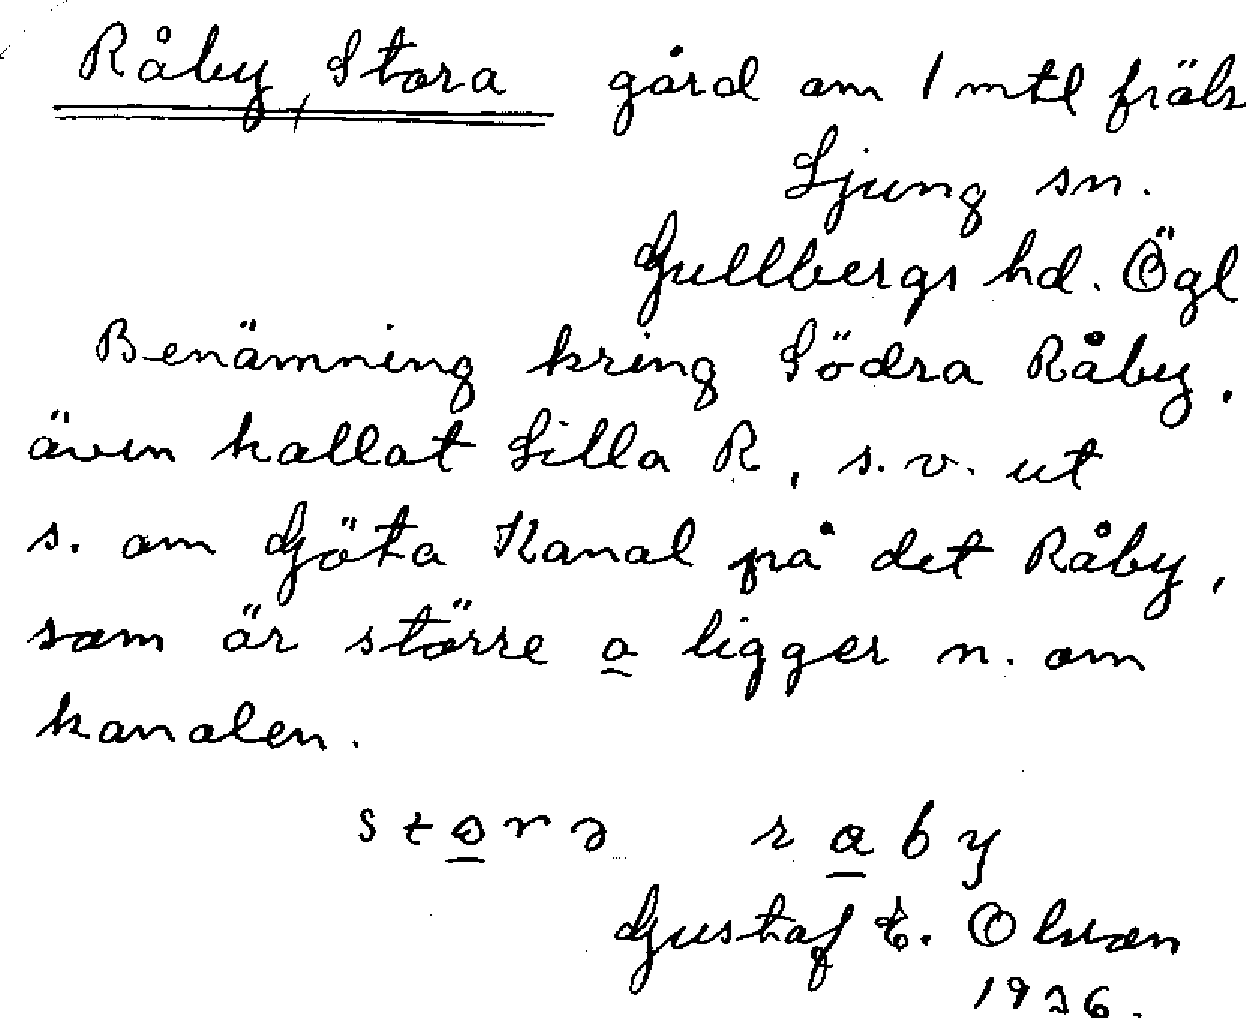 Råby, Stora gård om 1 mtl fräls
Ljung sn.
Gullbergs hd. Ögl
Benämning kring Södra Råby,
även kallat Lilla R, s.v. ut
s. om Göta Kanal på det Råby,
som är större o ligger n. om
kanalen.
storə råby
Gustaf E. Olsson
1926.